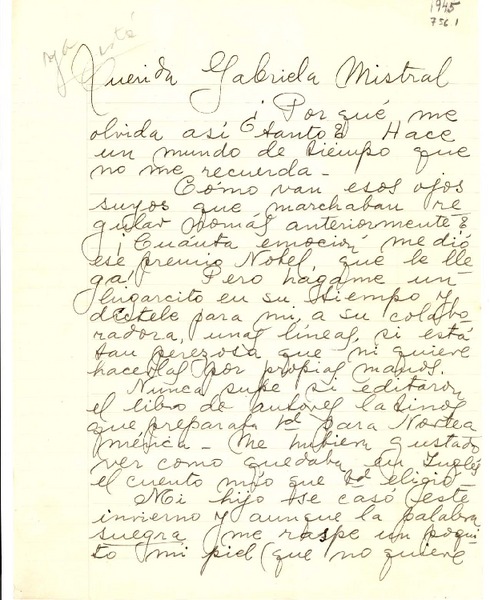 1945
756 1
ya está
Querida Gabriela Mistral
¿Por qué me
olvida así tanto? Hace
un mundo de tiempo que
no me recuerda -
Cómo van esos ojos
suyos que marchaban re
gular nomás anteriormente?
¡Cuánta emoción me dió
ese premio Nobel que le lle
ga! Pero hágame un
lugarcito en su tiempo y
díctele para mi, a su colabo
radora, unas líneas, si está
tan perezosa que ni quiere
hacerlas por propias manos.
Nunca supe si editaron
el libro de autores latinos
que preparaba Vd para Nortea
mérica - Me hubiera gustado
ver como quedaba en Inglés
el cuento mío que Vd eligió -
Mi hijo se casó este
invierno y aunque la palabra
suegra me raspe un poqui
to mi piel (que no quiere